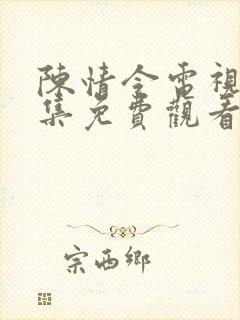 陳情令電視
集免費觀看
宗西鄉